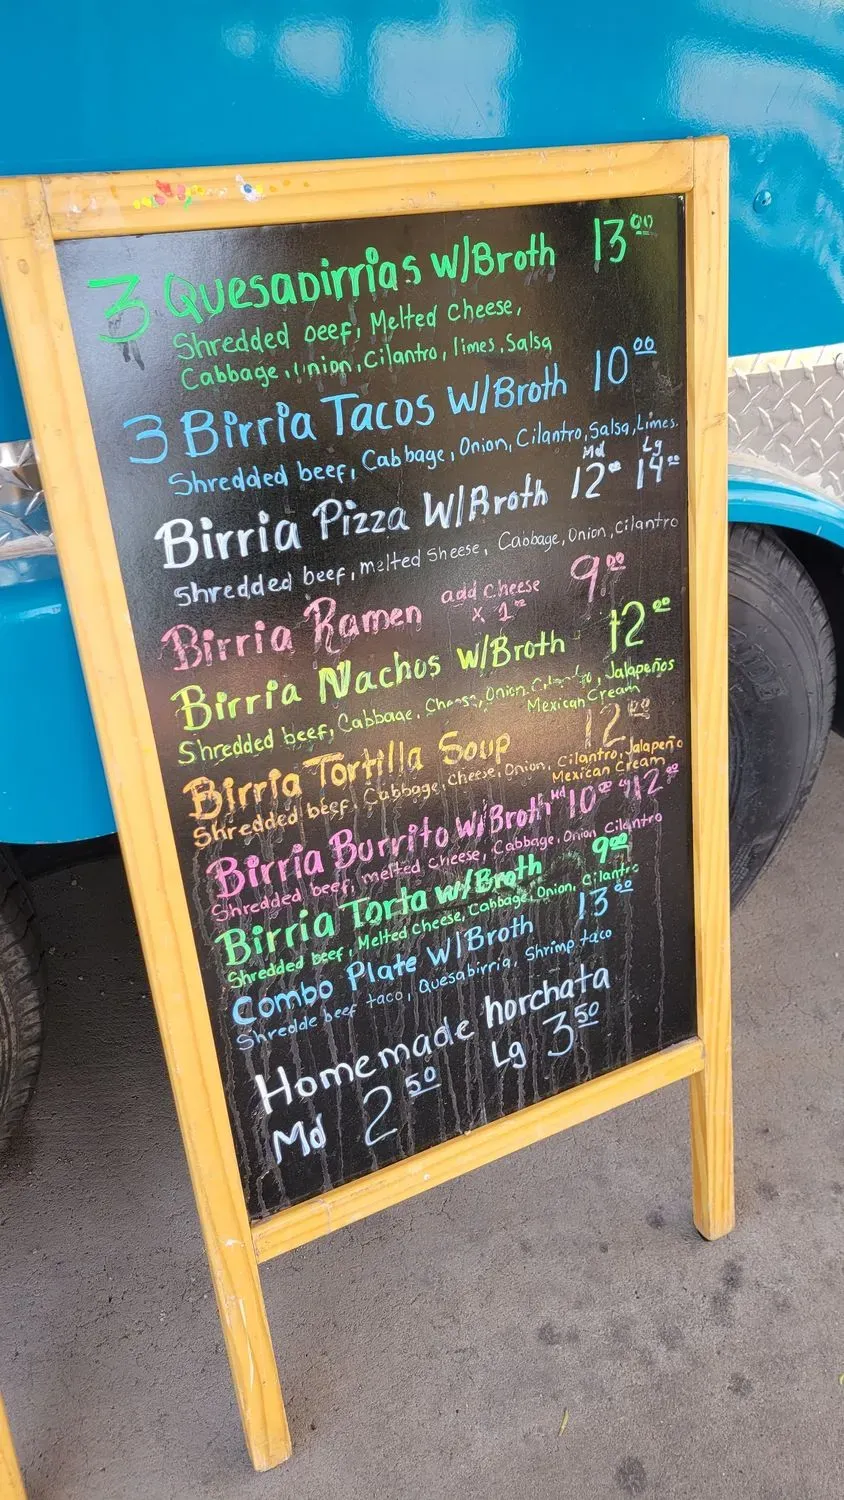 3 Quesabirrias w/Broth 13.00
Shredded beef, Melted Cheese,
Cabbage, Onion, Cilantro, limes, Salsa
3 Birria Tacos w/Broth 10.00
Shredded beef, Cabbage, Onion, Cilantro, Salsa, Limes.
Md Lg
Birria Pizza w/Broth 12.00 14.00
Shredded beef, melted Sheese, Cabbage, Onion, Cilantro
Birria Ramen add cheese x 1.00 9.00
Birria Nachos w/Broth 12.00
Shredded beef, Cabbage, Cheese, Onion, Cilantro, Jalapeños
Mexican Cream
Birria Tortilla Soup 12.00
Shredded beef, Cabbage, Cheese, Onion, Cilantro, Jalapeño
Mexican Cream
Birria Burrito w/Broth Md 10.00 Lg 12.00
Shredded beef, melted cheese, Cabbage, Onion Cilantro
Birria Torta w/Broth 9.00
Shredded beef, Melted Cheese, Cabbage, Onion, Cilantro
Combo Plate w/Broth 13.00
Shredde beef taco, Quesabirria, Shrimp taco
Homemade horchata
Md 2.50 Lg 3.50